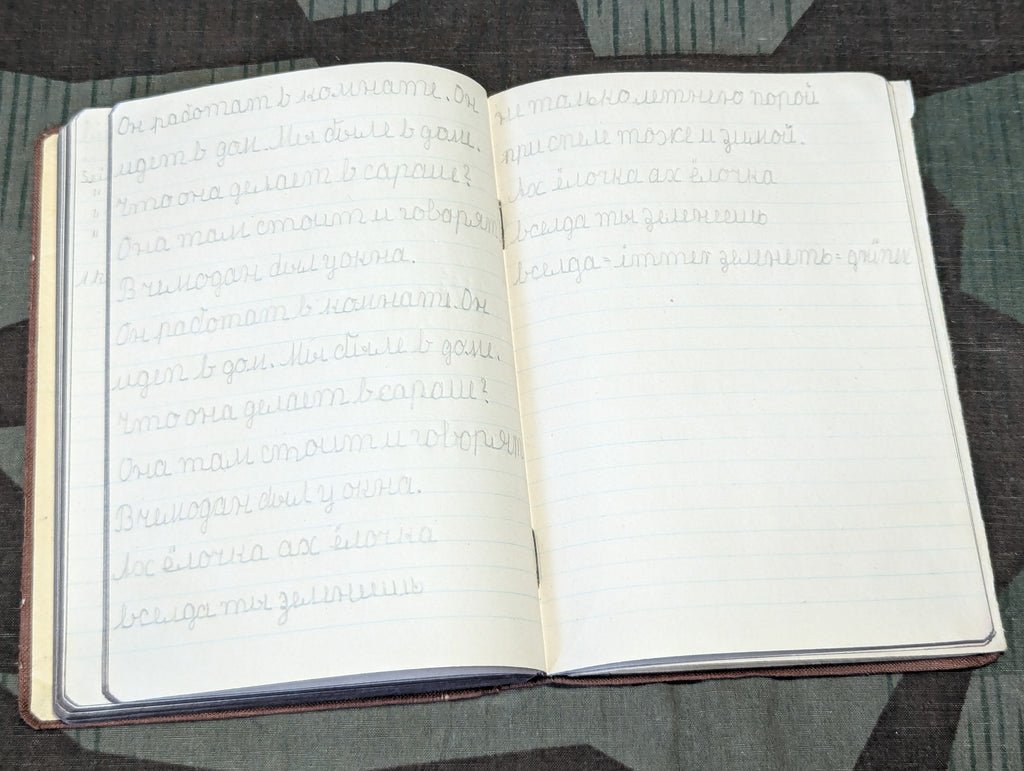 Он работат в комнате. Он
идет в дом. Мы были в доме.
Что она делает в сараше?
Она там стоит и говорят
В чемодан был у окна.
Он работат в комнате. Он
идет в дом. Мы были в доме.
Что она делает в сараше?
Она там стоит и говорят
В чемодан был у окна.
Ах ёлочка ах ёлочка
вселда ты зеленеешь
не только летнею порой
при стеле тоже и зимой.
Ах ёлочка ах ёлочка
вселда ты зеленеешь
вселда = immer зеленеть = grünen